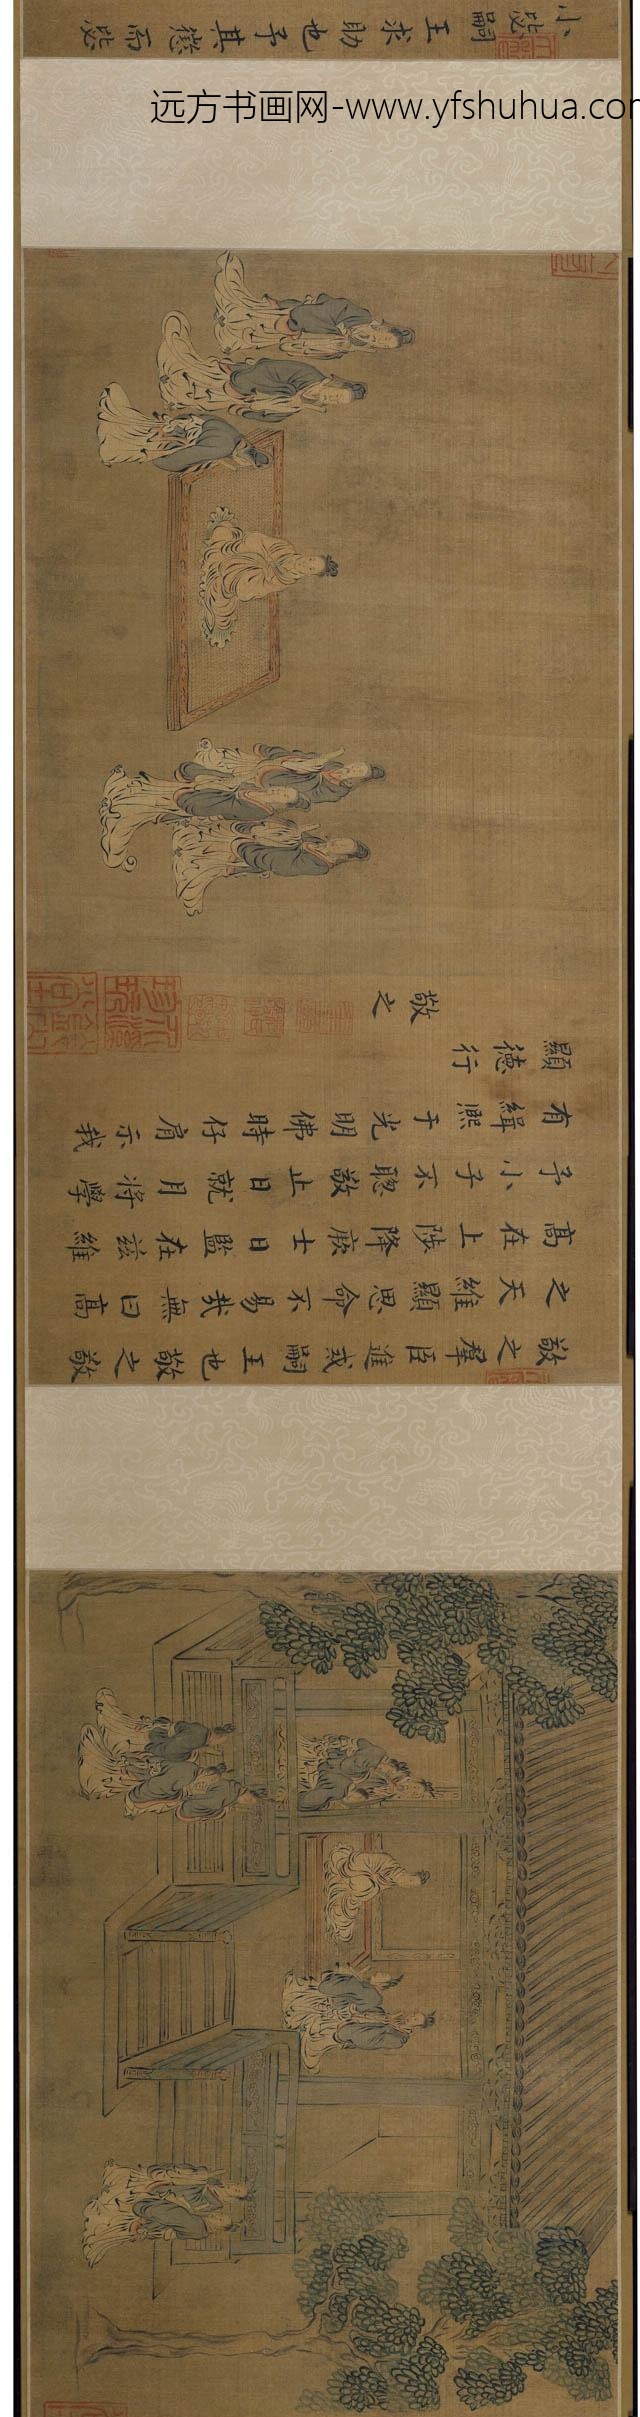 远方书画网-www.yfshuhua.com
敬之羣臣進戒嗣王也敬之敬
之天維顯思命不易哉無曰高
高在上陟降厥士日監在茲維
予小子不聰敬止日就月將學
有緝熙于光明佛時仔肩示我
顯德行
敬之
小毖嗣王求助也予其懲而毖